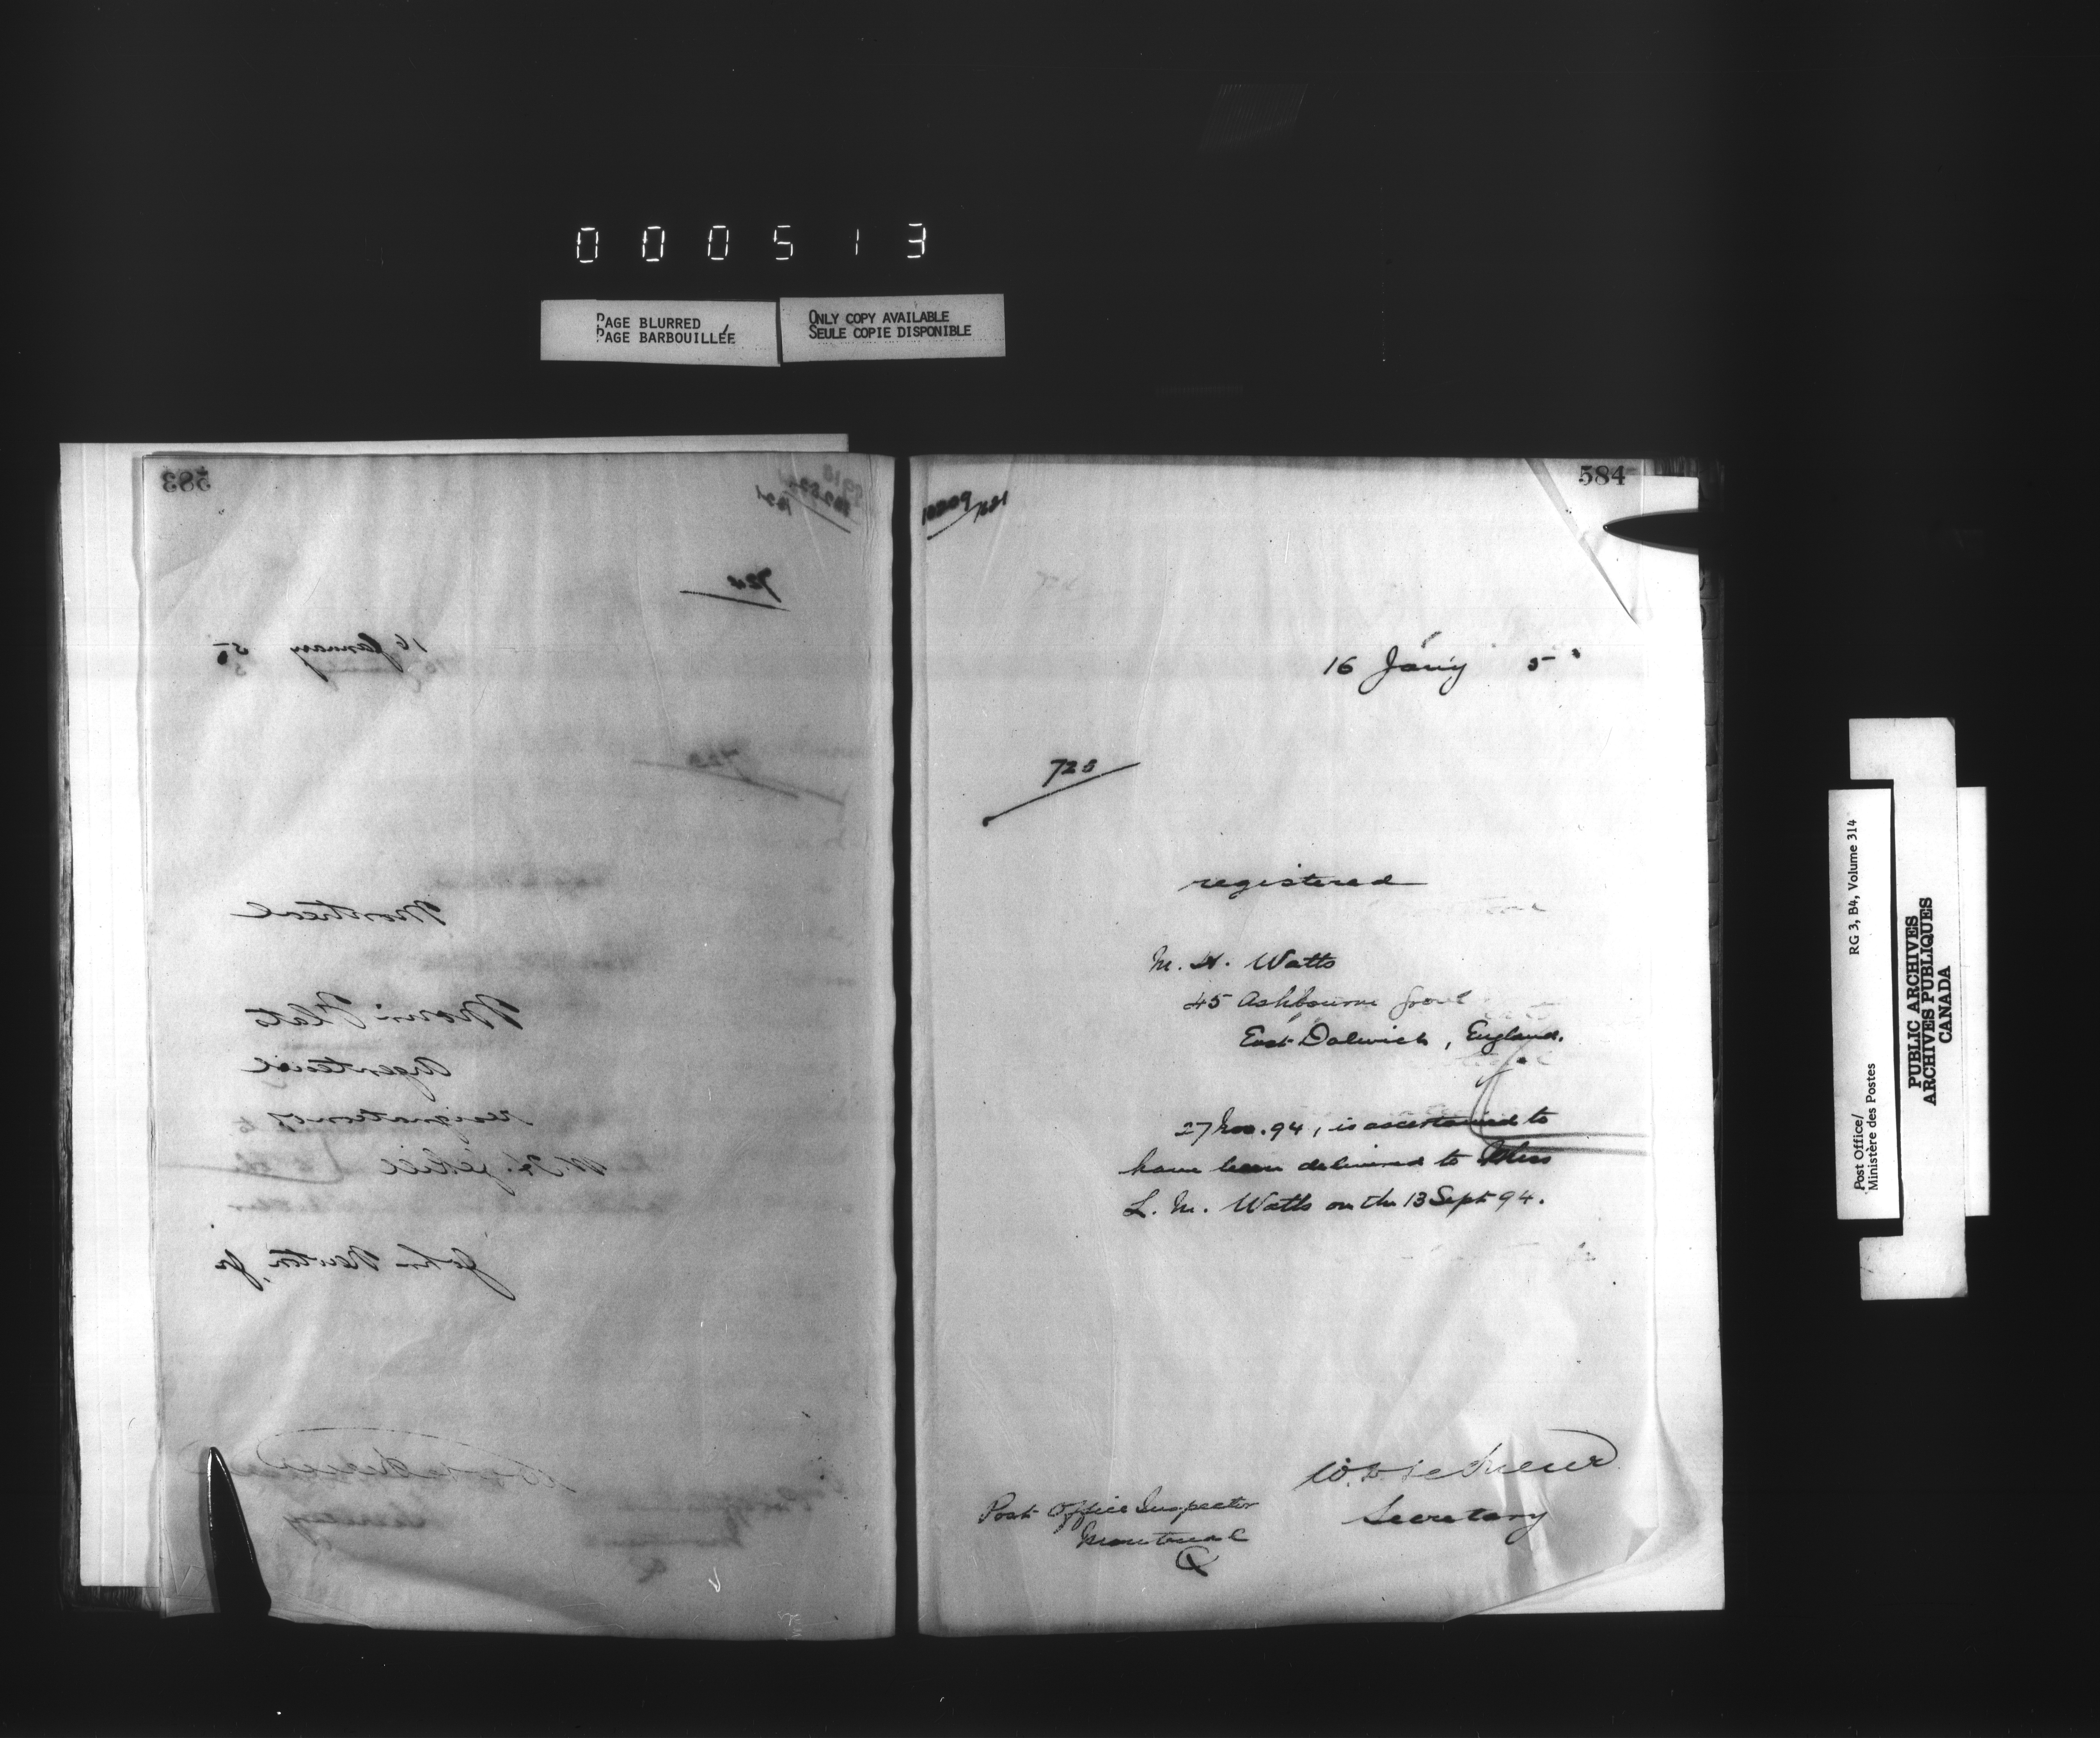 000513
PAGE BLURRED
PAGE BARBOUILLÉE
ONLY COPY AVAILABLE
SEULE COPIE DISPONIBLE
583
16 January 5
Montreal
Morin Flats
Argenteuil
resignation of
John Newton, Jr
584
16 Jany 5
725
registered
M. H. Watts
45 Ashbourne Grove
East Dulwich, England.
27 Nov. 94, is ascertained to
have been delivered to Miss
L. M. Watts on the 13 Sept 94.
Secretary
Post Office Inspector
Montreal
Q
Post Office/
Ministère des Postes
RG 3, B4, Volume 314
PUBLIC ARCHIVES
ARCHIVES PUBLIQUES
CANADA